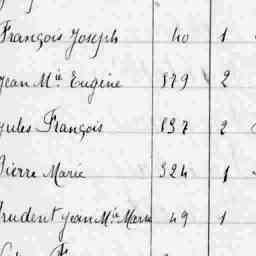 François Joseph 40 1
Jean Mie Eugène 879 2
Jules François 837 2
Pierre Marie 324 1
Prudent Jean Mie Marie 49 1